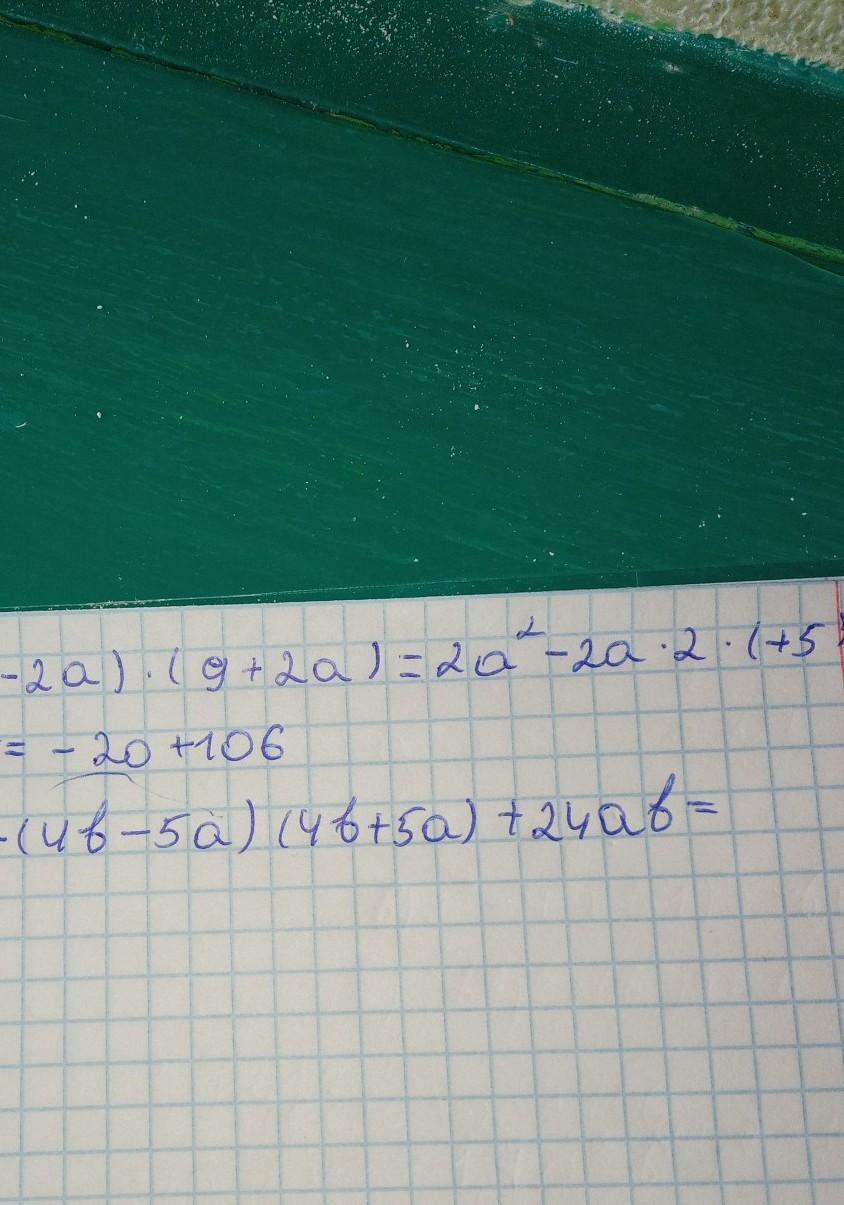 -2a) · (9+2a) = 2a² - 2a · 2 · (+5
= - 20 + 106
-(4b - 5a) (4b + 5a) + 24ab =